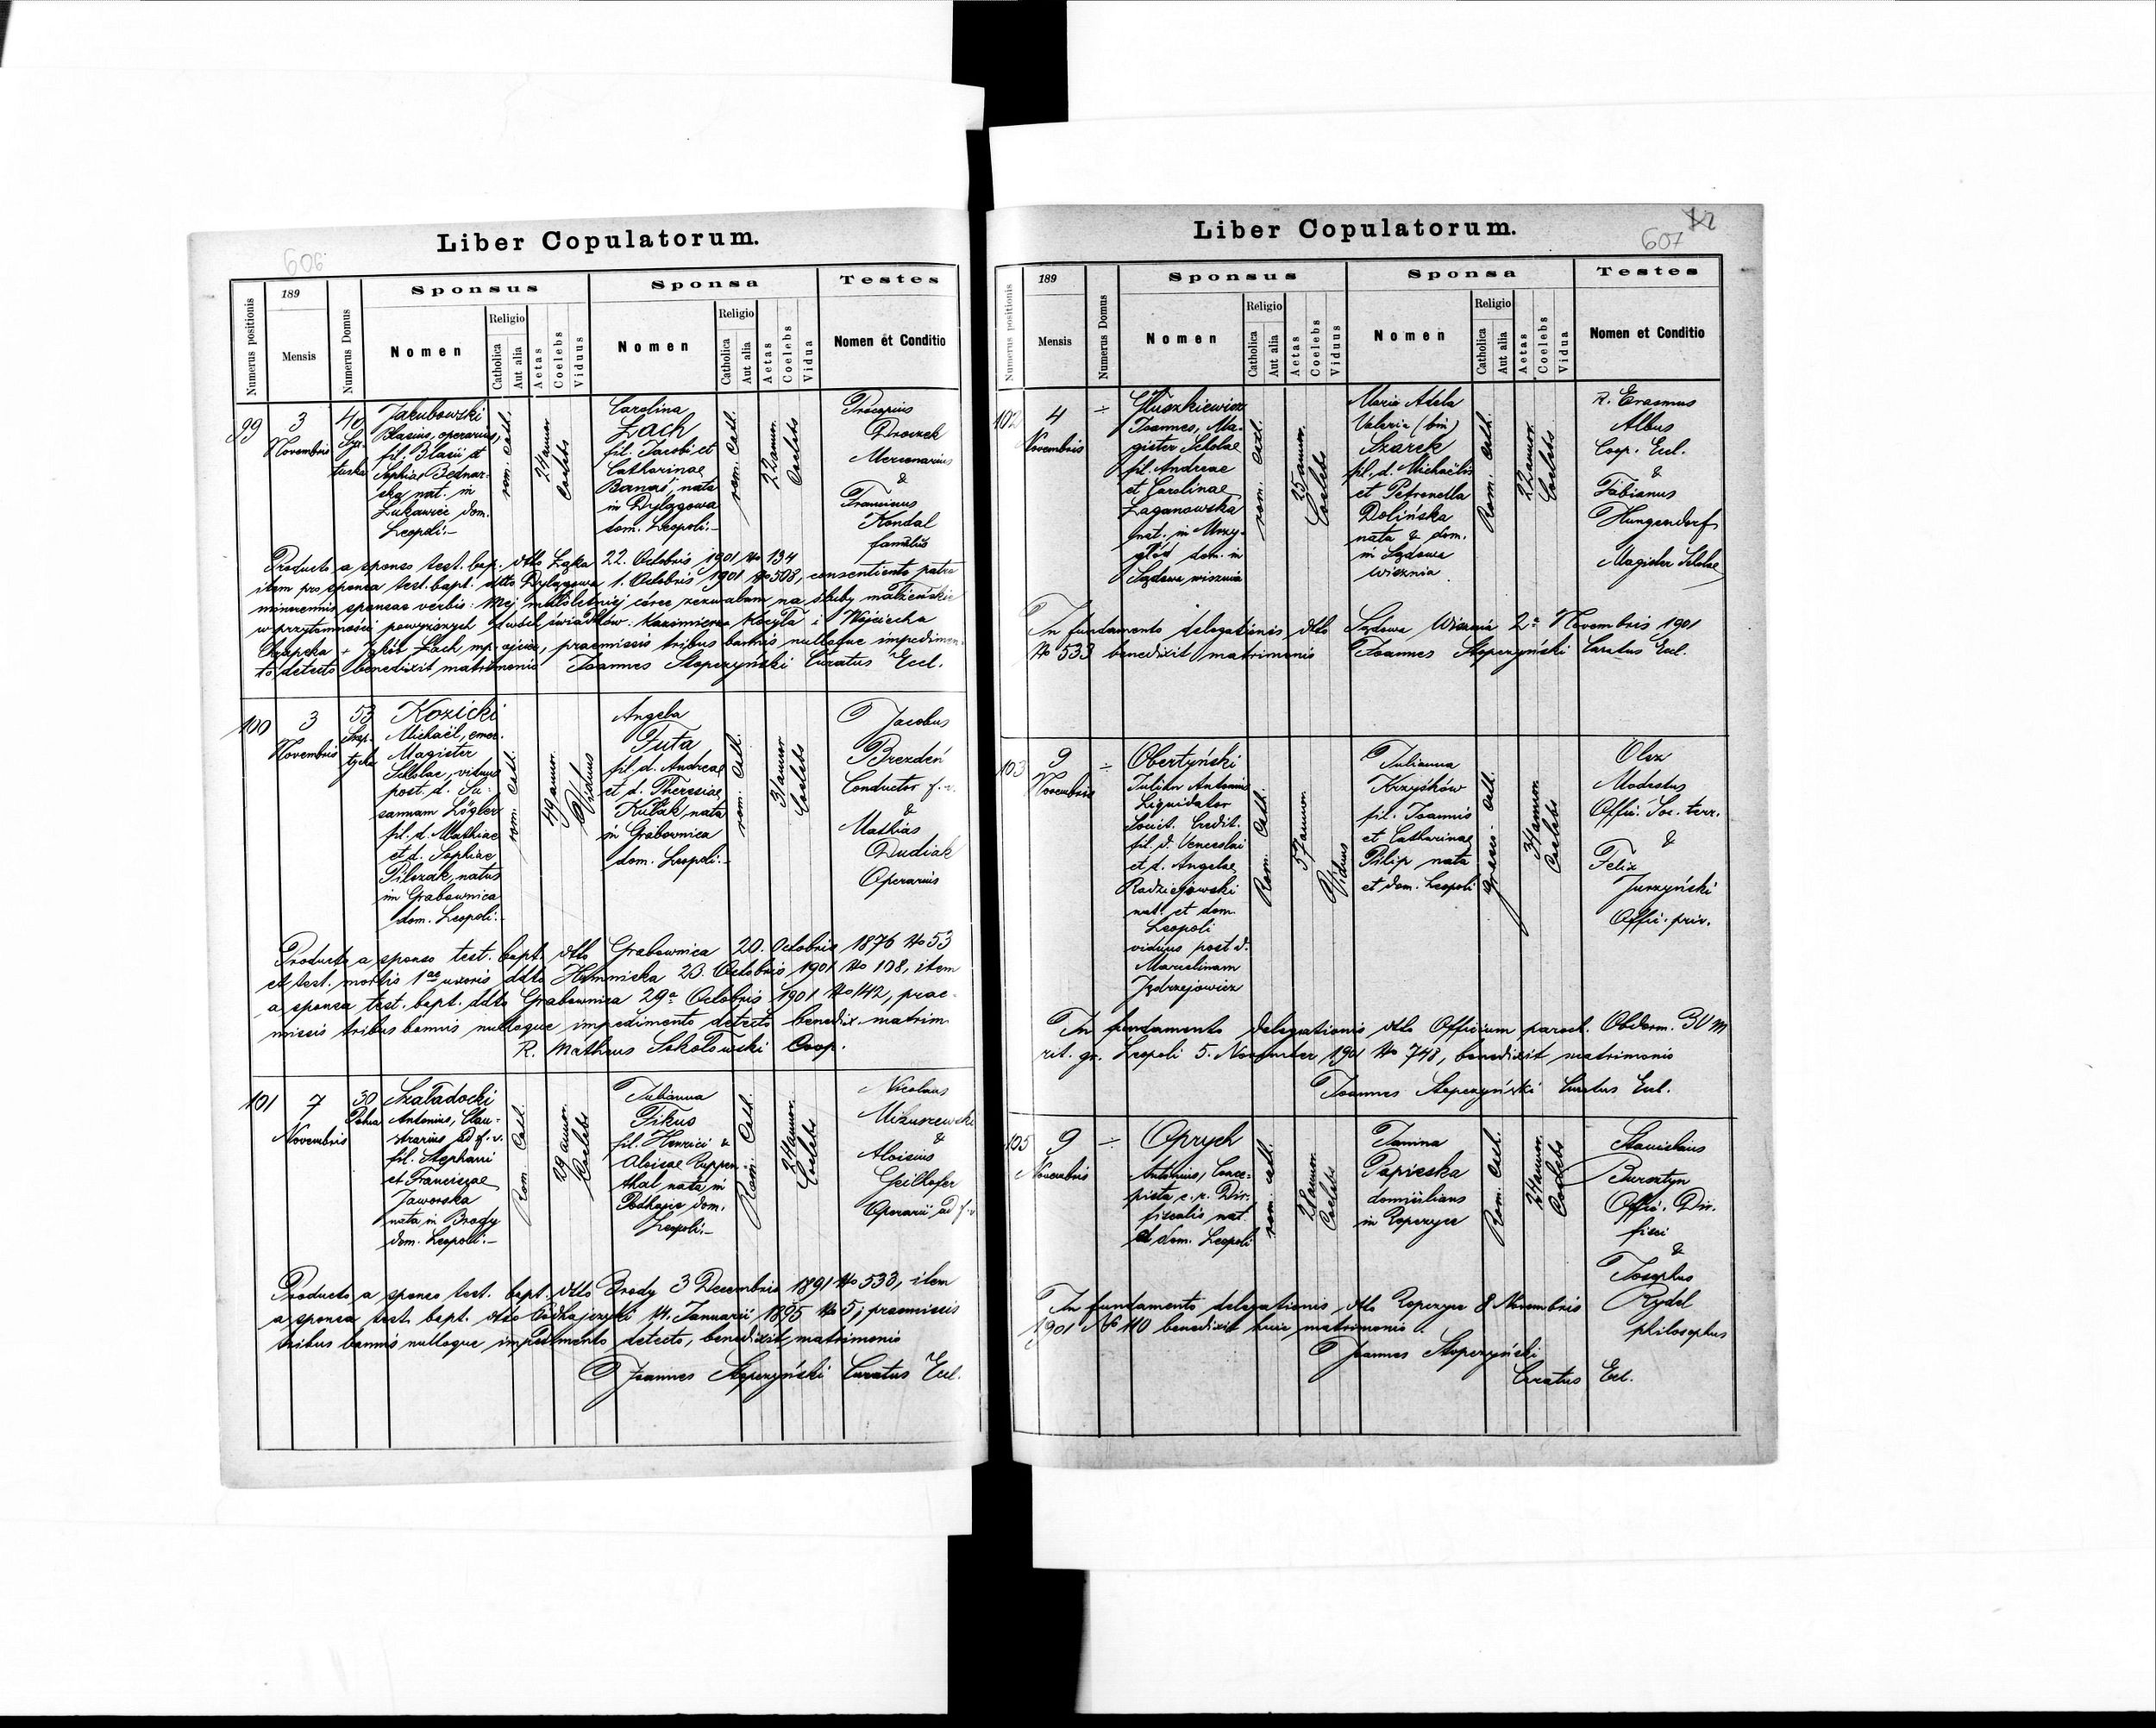 Liber Copulatorum.
606
Numerus positionis
189
Mensis
Numerus Domus
Sponsus
Nomen
Religio
Catholica
Aut alia
Aetas
Coelebs
Viduus
Sponsa
Nomen
Religio
Catholica
Aut alia
Aetas
Coelebs
Vidua
Testes
Nomen et Conditio
99
3
Novembris
Jakubowski
Blasius, operarius,
fil. Blasii et
Sophiae Bednar-
ska nat. in
Łukawice dom.
Leopoli.-
rom. cath.
24 annor.
Coelebs
Carolina
Żach
fil. Jacobi et
Catharinae
Banaś nata
in Dylągowa
dom. Leopoli.-
rom. cath.
22 annor.
Coelebs
Procopius
Droczek
Mercenarius
&
Franciscus
Kondal
famulus
Producto a sponso test. bap. dtto Łąka 22. Octobris 1901 No 134
item pro sponsa test. bapt. ddto Dylągowa 1. Octobris 1901 No 508, consentiente patre
minorennis sponsae verbis: Mej małoletniej córce zezwalam na śluby małżeńskie
w przytomności powyższych dwóch świadków: Kazimierza Kocyła i Wojciecha
Czapeka + Żach mp. ojciec, praemissis tribus bannis nulloque impedimen-
to detecto benedixit matrimonio Joannes Stopczyński Curatus Eccl.
100
3
Novembris
53
Kozicki
Michaël, emer.
Magister
Scholae, viduus
post. d. Su-
sannam Lögler
fil. d. Mathiae
et d. Sophiae
Pilszak, natus
in Grabownica
dom. Leopoli.-
rom. cath.
49 annor.
Viduus
Angela
Futa
fil. d. Andreae
et d. Theresiae
Kułak, nata
in Grabownica
dom. Leopoli.-
rom. cath.
31 annor.
Coelebs
Jacobus
Brezdeń
Conductor f. v.
&
Mathias
Dudiak
Operarius
Producto a sponso test. bapt. dtto Grabownica 20. Octobris 1876 No 53
et test. mortis 1ae uxoris ddto Humniska 23. Octobris 1901 No 108, item
a sponsa test. bapt. ddto Grabownica 29a Octobris 1901 No 142, prae-
missis tribus bannis nulloque impedimento detecto benedix. matrim.
R. Matheus Sokołowski Coop.
101
7
Novembris
30
Szaładocki
Antonius, Clau-
strarius ad f. v.
fil. Stephani
et Franciscae
Jaworska
nata in Brody
dom. Leopoli.-
Rom. Cath.
29 annor.
Coelebs
Julianna
Fikus
fil. Henrici &
Aloisae Ruppen-
thal nata in
Podhajce dom.
Leopoli.-
Rom. Cath.
24 annor.
Coelebs
Nicolaus
Mikuszewski
&
Aloisius
Geilhofer
Operarii ad f. v.
Producto a sponso test. bapt. dtto Brody 3 Decembris 1891 No 533, item
a sponsa test. bapt. dtto Podhajczyki 14. Januarii 1895 No 5; praemissis
tribus bannis nulloque impedimento detecto, benedixit matrimonio
Joannes Stopczyński Curatus Eccl.
Liber Copulatorum.
607
Numerus positionis
189
Mensis
Numerus Domus
Sponsus
Nomen
Religio
Catholica
Aut alia
Aetas
Coelebs
Viduus
Sponsa
Nomen
Religio
Catholica
Aut alia
Aetas
Coelebs
Vidua
Testes
Nomen et Conditio
102
4
Novembris
÷
Głuszkiewicz
Joannes, Ma-
gister Scholae
fil. Andreae
et Carolinae
Zaganowska
nat. in Mrzy-
głód dom. in
Sądowa wisznia
rom. cath.
25 annor.
Coelebs
Maria Adela
Valeria (bin)
Szarek
fil. d. Michaëlis
et Petronella
Dolińska
nata & dom.
in Sądowa
Wisznia
Rom. Cath.
22 annor.
Coelebs
R. Erasmus
Albus
Coop. Eccl.
&
Fabianus
Hungendorf
Magister Scholae
In fundamento delegationis dtto Sądowa Wisznia 2a Novembris 1901
No 533 benedixit matrimonio Joannes Stopczyński Curatus Eccl.
103
9
Novembris
÷
Obertyński
Julian Antonius
Liquidator
Societ. Credit.
fil. d. Venceslai
et d. Angelae
Radziejowski
nat. et dom.
Leopoli
viduus post d.
Marcelinam
Jędrzejowicz
Rom. Cath.
57 annor.
Viduus
Julianna
Krzyśków
fil. Joannis
et Catharinae
Pilip nata
et dom. Leopoli
graec. cath.
34 annor.
Coelebs
Olex
Modestus
Offic. Soc. terr.
&
Felix
Jurzyński
Offic. priv.
In fundamento delegationis dtto Officium paroch. Obdorm. BVM
rit. gr. Leopoli 5. November 1901 No 748, benedixit matrimonio
Joannes Stopczyński Curatus Eccl.
105
9
Novembris
—
Oprych
Antonius, Conce-
pista c. r. Dir.
fiscalis nat.
et dom. Leopoli
rom. cath.
28 annor.
Coelebs
Janina
Papieska
domicilians
in Ropczyce
Rom. Cath.
24 annor.
Coelebs
Stanislaus
Bursztyn
Offic. Dir.
fisci
&
Josephus
Rydel
philosophus
In fundamento delegationis dtto Ropczyce 8 Novembris
1901 No 110 benedixit huic matrimonio.
Joannes Stopczyński
Curatus Eccl.